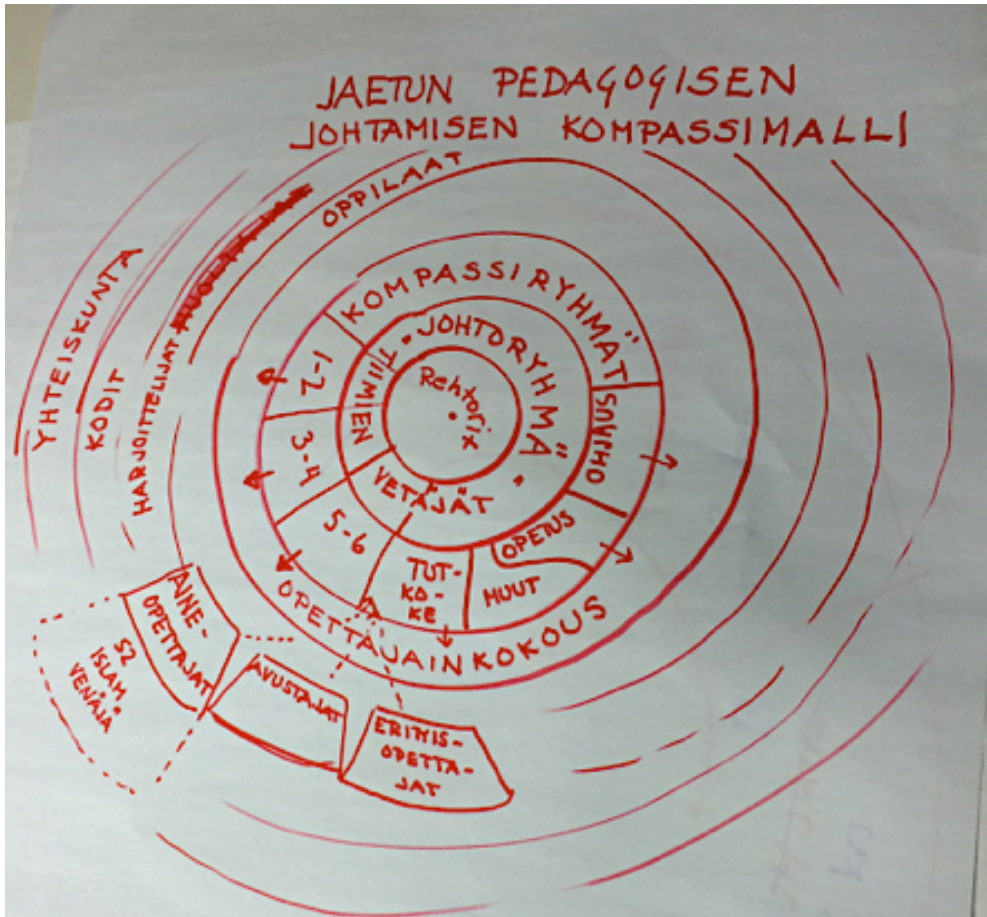 JAETUN PEDAGOGISEN
JOHTAMISEN KOMPASSIMALLI
OPPILAAT
YHTEISKUNTA
KODIT
HARJOITTELIJAT
KOMPASSIRYHMÄT
JOHTORYHMÄ
TIIMIEN
VETÄJÄT
1-2
3-4
5-6
TUT-
KO-
KE
MUUT
OPETUS
OHJAUS
OPETTAJAINKOKOUS
AINE-
OPETTAJAT
S2
ISLAM
VENÄJÄ
AVUSTAJAT
ERITYIS-
OPETTA-
JAT